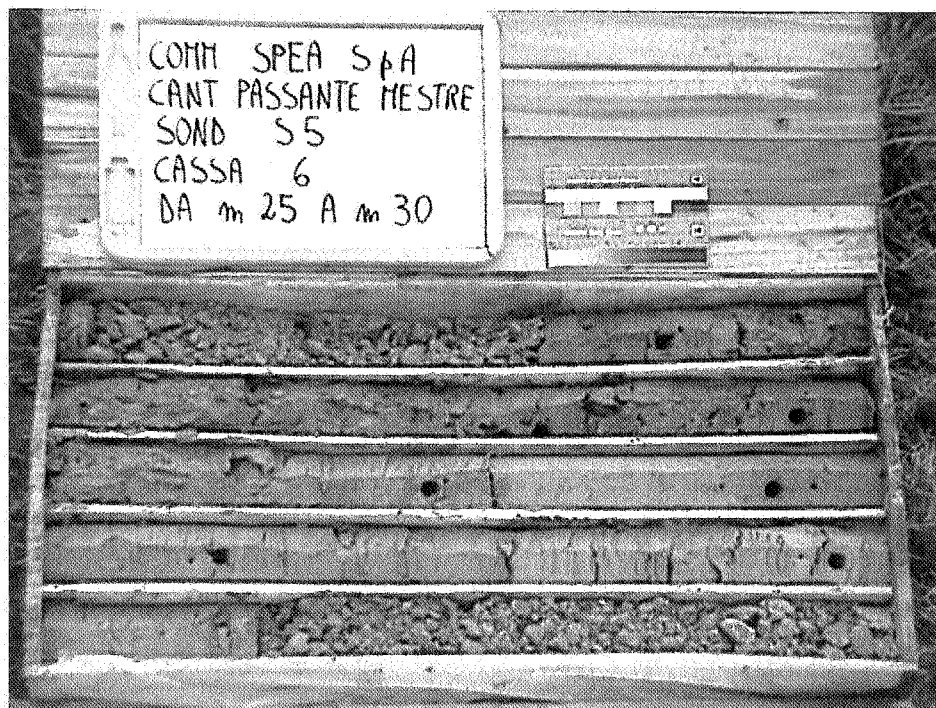 COMM SPEA SpA
CANT PASSANTE MESTRE
SOND S5
CASSA 6
DA m 25 A m 30